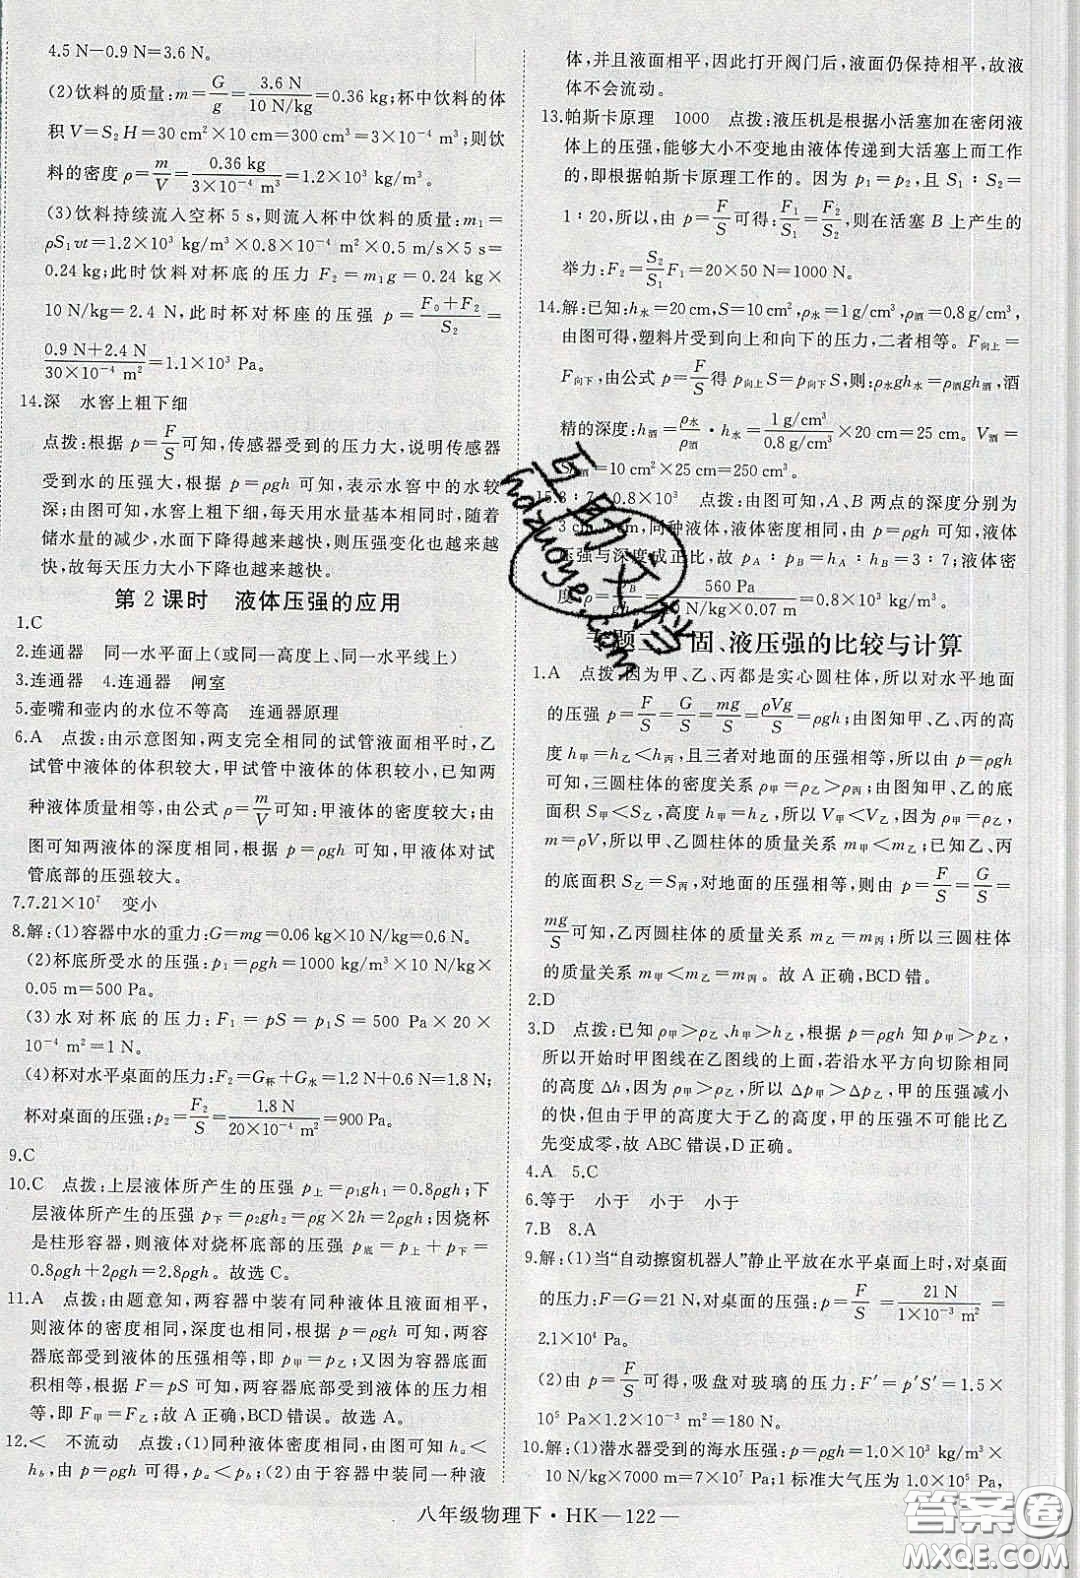 4.5 N－0.9 N＝3.6 N。
(2)饮料的质量:m＝G/g＝3.6 N/10 N/kg＝0.36 kg;杯中饮料的体
积 V＝S₂H＝30 cm²×10 cm＝300 cm³＝3×10⁻⁴ m³;则饮
料的密度 ρ＝m/V＝0.36 kg/3×10⁻⁴ m³＝1.2×10³ kg/m³。
(3)饮料持续流入空杯 5 s,则流入杯中饮料的质量:m₁＝
ρS₁vt＝1.2×10³ kg/m³×0.8×10⁻⁴ m²×0.5 m/s×5 s＝
0.24 kg;此时饮料对杯底的压力 F₂＝m₁g＝0.24 kg×
10 N/kg＝2.4 N,此时杯对杯座的压强 p＝F₀＋F₂/S₂＝
0.9 N＋2.4 N/30×10⁻⁴ m²＝1.1×10³ Pa。
14.深 水窖上粗下细
点拨:根据 p＝F/S可知,传感器受到的压力大,说明传感器
受到水的压强大,根据 p＝ρgh 可知,表示水窖中的水较
深;由图可知,水窖上粗下细,每天用水量基本相同时,随着
储水量的减少,水面下降得越来越快,则压强变化也越来越
快,故每天压力大小下降也越来越快。
第 2 课时 液体压强的应用
1.C
2.连通器 同一水平面上(或同一高度上、同一水平线上)
3.连通器 4.连通器 闸室
5.壶嘴和壶内的水位不等高 连通器原理
6.A 点拨:由示意图知,两支完全相同的试管液面相平时,乙
试管中液体的体积较大,甲试管中液体的体积较小,已知两
种液体质量相等,由公式 ρ＝m/V可知:甲液体的密度较大;由
图可知两液体的深度相同,根据 p＝ρgh 可知,甲液体对试
管底部的压强较大。
7.7.21×10⁷ 变小
8.解:(1)容器中水的重力:G＝mg＝0.06 kg×10 N/kg＝0.6 N。
(2)杯底所受水的压强:p₁＝ρgh＝1000 kg/m³×10 N/kg×
0.05 m＝500 Pa。
(3)水对杯底的压力:F₁＝pS＝p₁S＝500 Pa×20×
10⁻⁴ m²＝1 N。
(4)杯对水平桌面的压力:F₂＝G杯＋G水＝1.2 N＋0.6 N＝1.8 N;
杯对桌面的压强:p₂＝F₂/S＝1.8 N/20×10⁻⁴ m²＝900 Pa。
9.C
10.C 点拨:上层液体所产生的压强 p上＝ρ₁gh₁＝0.8ρgh;下
层液体所产生的压强 p下＝ρ₂gh₂＝ρg×2h＝2ρgh;因烧杯
是柱形容器,则液体对烧杯底部的压强 p底＝p上＋p下＝
0.8ρgh＋2ρgh＝2.8ρgh。故选 C。
11.A 点拨:由题意知,两容器中装有同种液体且液面相平,
则液体的密度相同,深度也相同,根据 p＝ρgh 可知,两容
器底部受到液体的压强相等,即 p甲＝p乙;又因为容器底面
积相等,根据 F＝pS 可知,两容器底部受到液体的压力相
等,即 F甲＝F乙;故 A 正确,BCD错误。故选 A。
12.＜ 不流动 点拨:(1)同种液体密度相同,由图可知 hₐ＜
h_b,由 p＝ρgh 可得,pₐ＜p_b;(2)由于容器中装同一种液
体,并且液面相平,因此打开阀门后,液面仍保持相平,故液
体不会流动。
13.帕斯卡原理 1000 点拨:液压机是根据小活塞加在密闭液
体上的压强,能够大小不变地由液体传递到大活塞上而工作
的,即根据帕斯卡原理工作的。因为 p₁＝p₂,且 S₁∶S₂＝
1∶20,所以,由 p＝F/S可得:F₁/S₁＝F₂/S₂,则在活塞 B 上产生的
举力:F₂＝S₂/S₁F₁＝20×50 N＝1000 N。
14.解:已知:h水＝20 cm,S＝10 cm²,ρ水＝1 g/cm³,ρ酒＝0.8 g/cm³,
由图可得,塑料片受到向上和向下的压力,二者相等。F向上＝
F向下,由公式 p＝F/S得 p向上S＝p向下S,则:ρ水gh水＝ρ酒gh酒,酒
精的深度:h酒＝ρ水/ρ酒·h水＝1 g/cm³/0.8 g/cm³×20 cm＝25 cm。V酒＝
＝10 cm²×25 cm＝250 cm³。
15.3∶7 0.8×10³ 点拨:由图可知,A、B 两点的深度分别为
3 cm、 cm,同种液体,液体密度相同,由 p＝ρgh 可知,液体
压强与深度成正比,故 p_A∶p_B＝h_A∶h_B＝3∶7;液体密
度 ρ＝p_B/gh_B＝560 Pa/10 N/kg×0.07 m＝0.8×10³ kg/m³。
题 固、液压强的比较与计算
1.A 点拨:因为甲、乙、丙都是实心圆柱体,所以对水平地面
的压强 p＝F/S＝G/S＝mg/S＝ρVg/S＝ρgh;由图知甲、乙、丙的高
度 h甲＜h乙＜h丙,且三者对地面的压强相等,所以由 p＝ρgh
可知,三圆柱体的密度关系 ρ甲＞ρ乙＞ρ丙;由图知甲、乙的底
面积 S甲＜S乙,高度 h甲＜h乙,所以体积 V甲＜V乙,由
m＝ρV,所以,甲、乙圆柱体的质量关系 m甲＜m乙;已知乙、丙
的底面积 S乙＝S丙,对地面的压强相等,所以由 p＝F/S＝G/S＝
mg/S可知,乙丙圆柱体的质量关系 m乙＝m丙;所以三圆柱体
的质量关系 m甲＜m乙＝m丙。故 A 正确,BCD错。
2.D
3.D 点拨:已知 ρ甲＞ρ乙、h甲＞h乙,根据 p＝ρgh 知 p甲＞p乙,
所以开始时甲图线在乙图线的上面,若沿水平方向切除相同
的高度 Δh,因为 ρ甲＞ρ乙,所以 Δp甲＞Δp乙,甲的压强减小
的快,但由于甲的高度大于乙的高度,甲的压强不可能比乙
先变成零,故 ABC 错误,D 正确。
4.A 5.C
6.等于 小于 小于 小于
7.B 8.A
9.解:(1)当“自动擦窗机器人”静止平放在水平桌面上时,对桌面
的压力:F＝G＝21 N,对桌面的压强:p＝F/S＝21 N/1×10⁻³ m²＝
2.1×10⁴ Pa。
(2)由 p＝F/S可得,吸盘对玻璃的压力:F′＝p′S′＝1.5×
10⁵ Pa×1.2×10⁻³ m²＝180 N。
10.解:(1)潜水器受到的海水压强:p＝ρgh＝1.0×10³ kg/m³×
10 N/kg×7000 m＝7×10⁷ Pa;1 标准大气压为 1.0×10⁵ Pa,
八年级物理下·HK—122—
互助文档
hdzuoye.com
答案圈
MXQE.COM